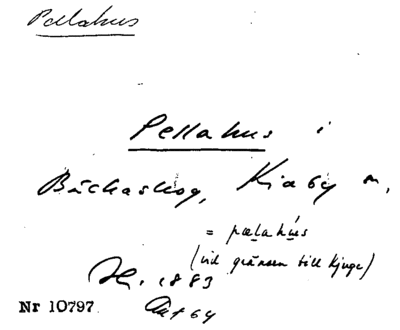 Pellahus
Pellahus i
Bäckaskog, Kiaby sn,
= pælahus
(vid gränsen till Kjuge)
1883
Nr 10797